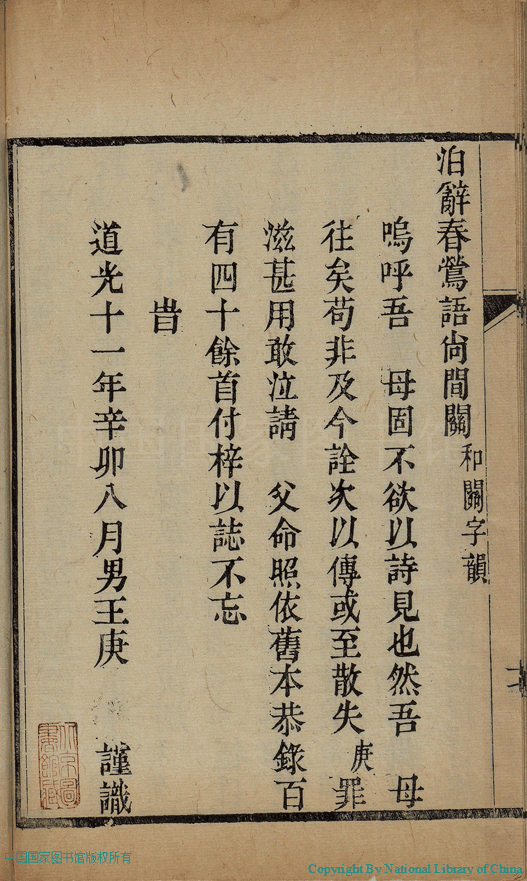 泊辭春鶯語尙間關和關字韻
嗚呼吾　母固不欲以詩見也然吾　母
往矣苟非及今詮次以傳或至散失庚罪
滋甚用敢泣請　父命照依舊本恭錄百
有四十餘首付梓以誌不忘
旹
道光十一年辛卯八月男王庚　謹識
中国国家图书馆版权所有
Copyright By National Library of China